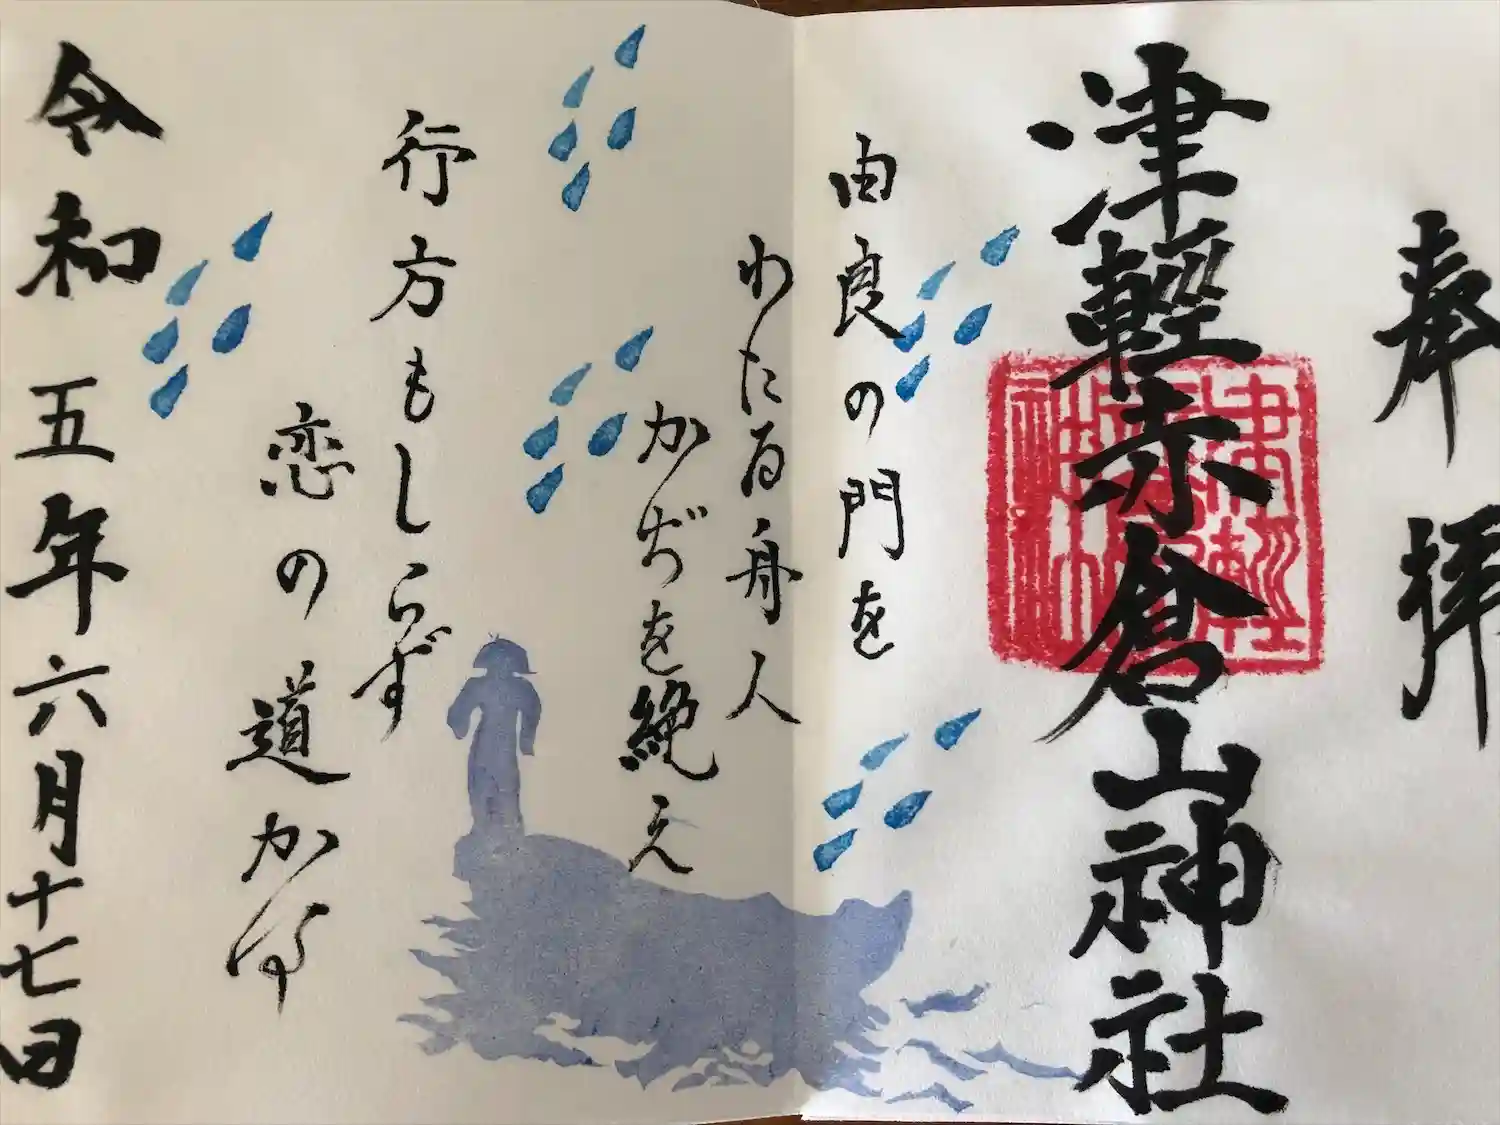 奉拝
津輕赤倉山神社
由良の門を
わたる舟人
かぢを絶え
行方もしらず
恋の道かな
令和五年六月十七日